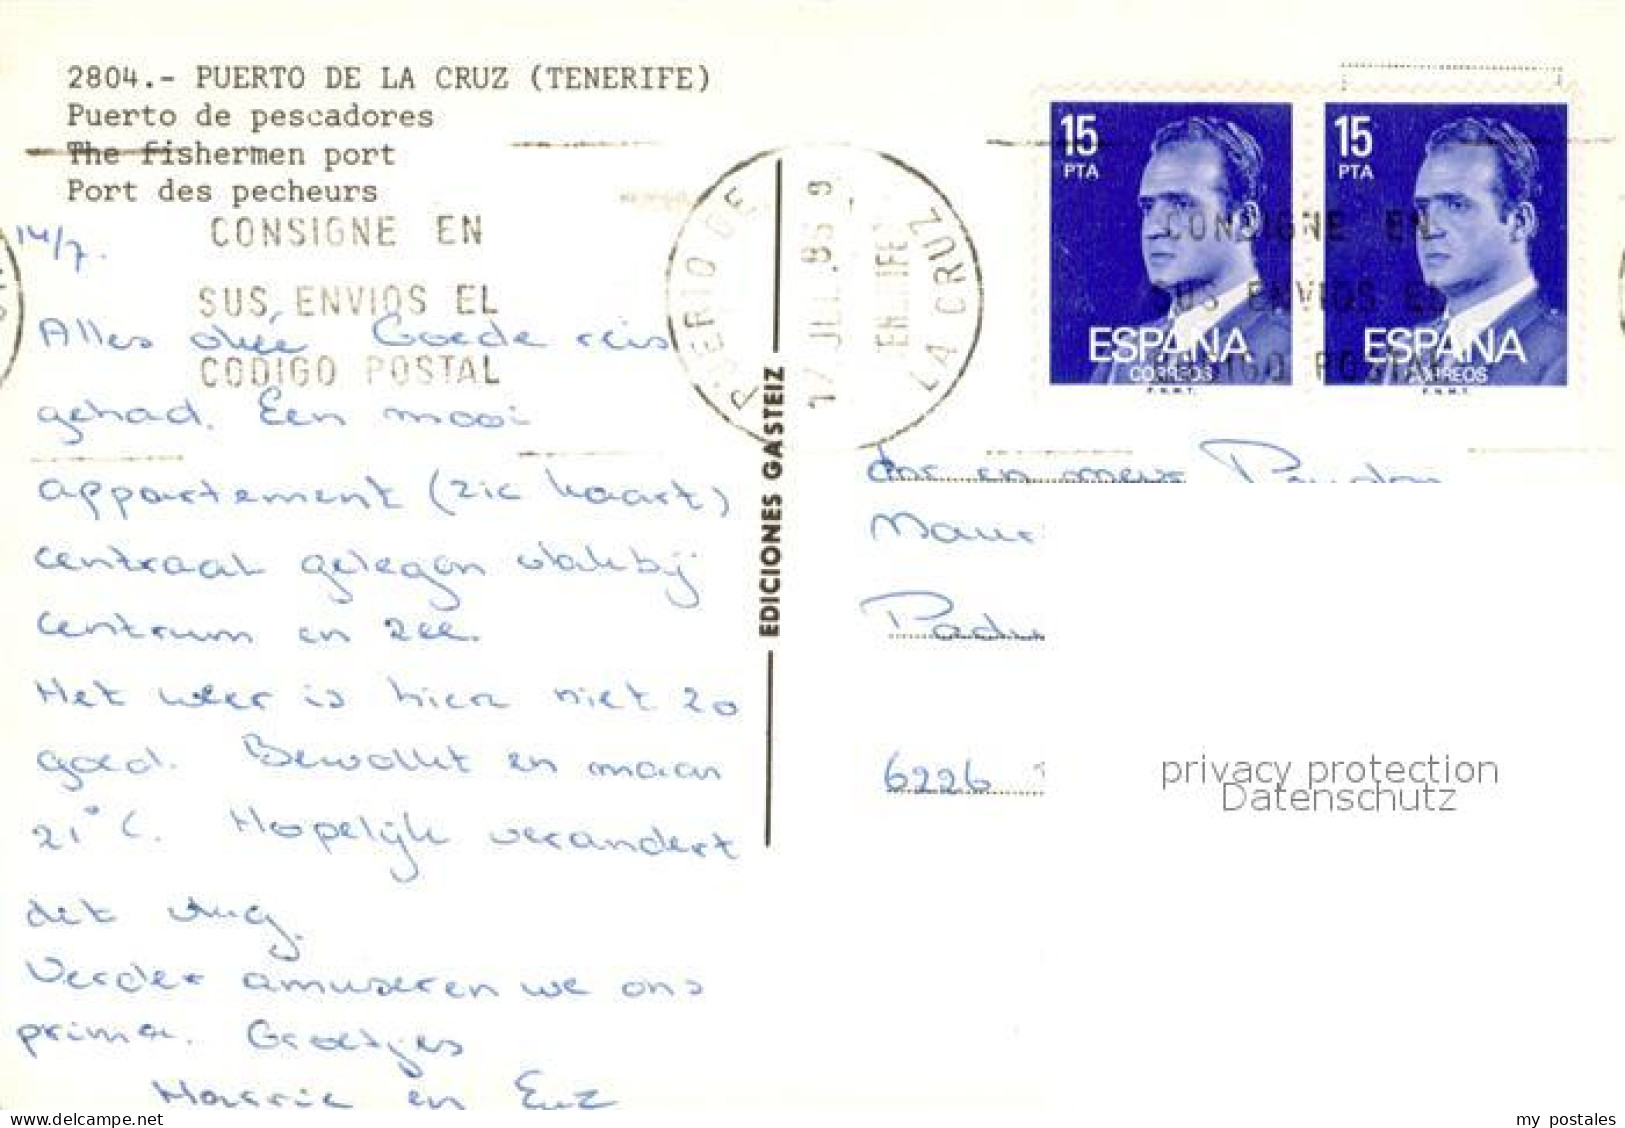 2804.- PUERTO DE LA CRUZ (TENERIFE)
Puerto de pescadores
The fishermen port
Port des pecheurs
14/7.
CONSIGNE EN
SUS ENVIOS EL
CODIGO POSTAL
Alles oké Goede reis
gehad. Een mooi
appartement (zie kaart)
centraal gelegen vlakbij
centrum en zee.
Het weer is hier niet zo
goed. Bewolkt en maar
21°C. Hopelijk verandert
dit vlug.
Verder amuseren we ons
prima. Groetjes
Harrie en
EDICIONES GASTEIZ
PUERTO DE LA CRUZ
17 JUL.86
TENERIFE
15 PTA
ESPAÑA
CORREOS
F.N.M.T.
15 PTA
ESPAÑA
CORREOS
F.N.M.T.
CONSIGNE EN
SUS ENVIOS EL
CODIGO POSTAL
6226
privacy protection
Datenschutz
my postales